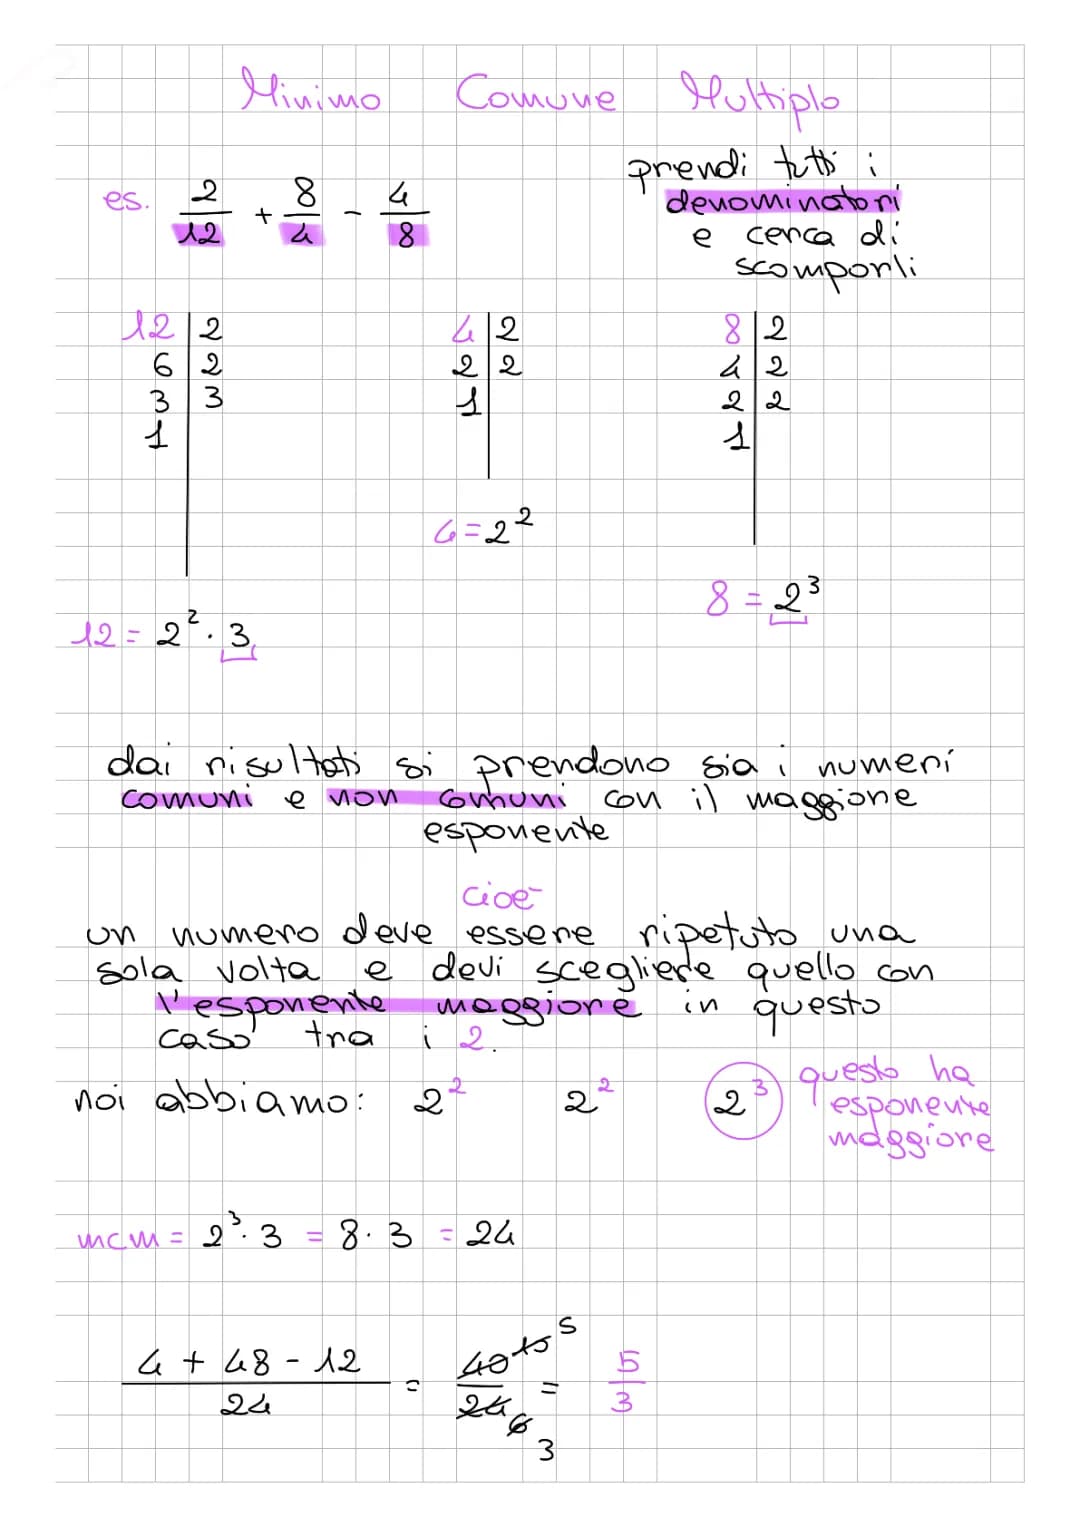 Minimo Comune Multiplo
prendi tutti i
denominatori
e cerca di
scomporli
es. 2/12 + 8/4 - 4/8
12 | 2
6 | 2
3 | 3
1
4 | 2
2 | 2
1
8 | 2
4 | 2
2 | 2
1
4 = 2²
8 = 2³
12 = 2² · 3
dai risultati si prendono sia i numeri
comuni e non comuni con il maggiore
esponente
cioè
un numero deve essere ripetuto una
sola volta e devi scegliere quello con
l'esponente maggiore in questo
caso tra i 2.
noi abbiamo: 2² 2² 2³
questo ha
esponente
maggiore
mcm = 2³ · 3 = 8 · 3 = 24
4 + 48 - 12 / 24 = 40 10 5 / 24 6 3 = 5/3